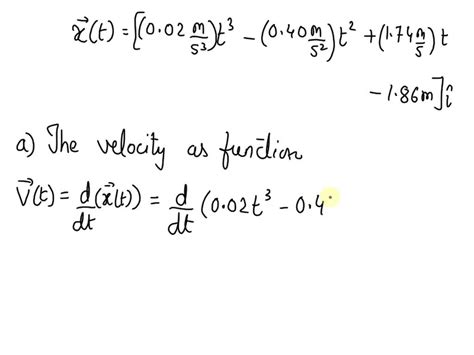 x⃗(t) = [(0.02 m/s³)t³ − (0.40 m/s²)t² + (1.74 m/s) t
− 1.86m] î
a) The velocity as function
V⃗(t) = d/dt (x⃗(t)) = d/dt (0.02t³ − 0.4